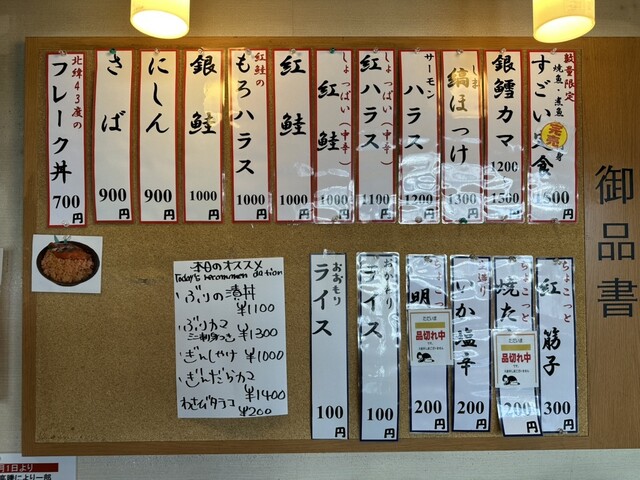 御品書
数量限定
焼魚・煮魚
すごい定食
完売
1500円
銀鱈カマ
1200
1500円
しま
縞ほっけ
1300円
サーモン
ハラス
1200円
しょっぱい(中辛)
紅ハラス
1100円
しょっぱい(中辛)
紅鮭
1000円
紅鮭
1000円
紅鮭の
もろハラス
1000円
銀鮭
1000円
にしん
900円
さば
900円
北緯43度の
フレーク丼
700円
ちょこっと
紅筋子
300円
ちょこっと
焼た
ただいま
品切れ中
です。
200円
いか塩辛
200円
明
ただいま
品切れ中
です。
200円
おかわり
ライス
100円
おおもり
ライス
100円
本日のオススメ
Today's recommendation
ぶりの漬丼
¥1100
ぶりカマ
¥1300
ぎんしゃけ ¥1000
ぎんだらカマ
¥1400
わさびタラコ
¥200
月1日より